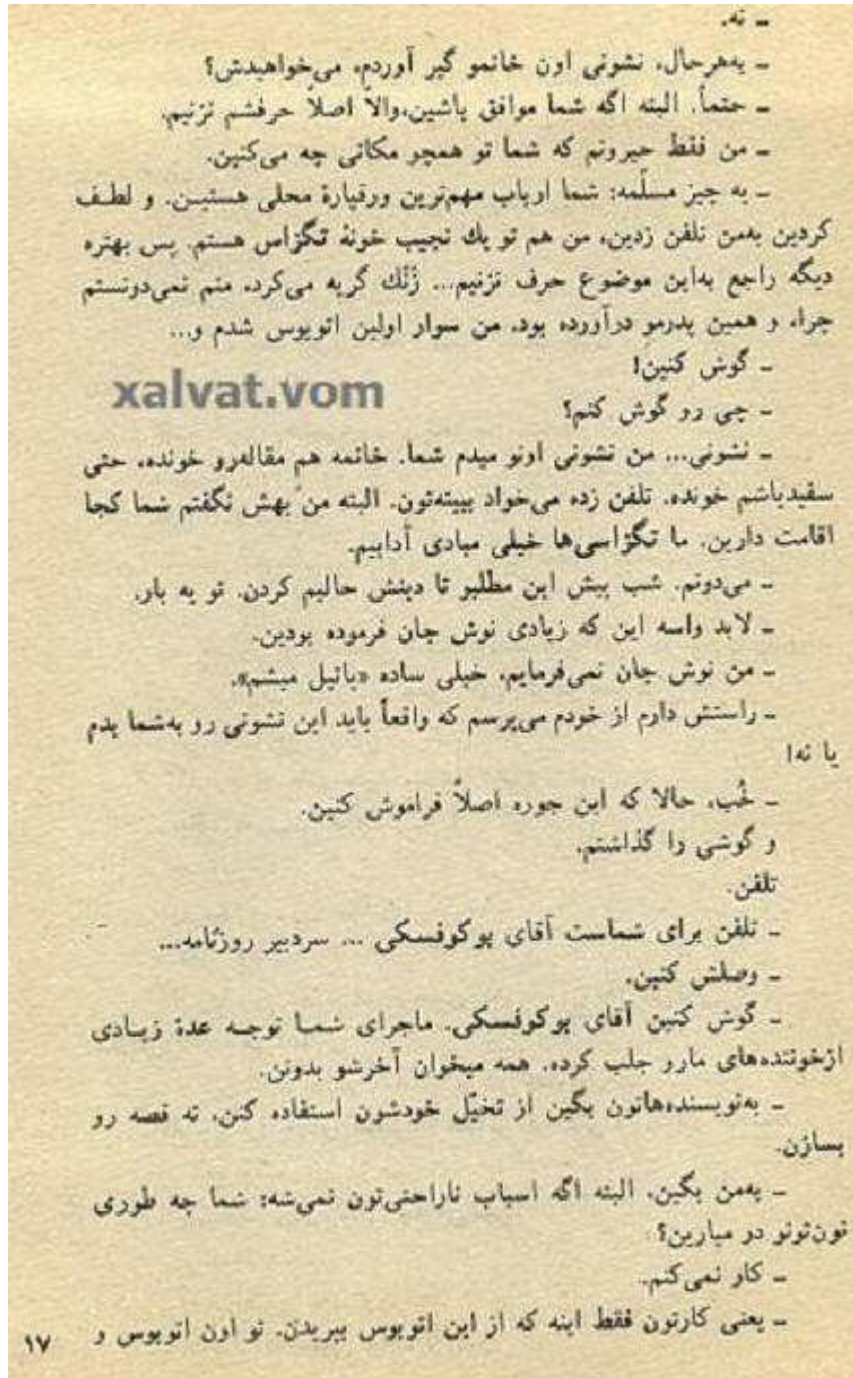 ـ نه.
ـ به‌هرحال، نشونی اون خانمو گیر آوردم، می‌خواهیدش؟
ـ حتماً. البته اگه شما موافق باشین،والاّ اصلاً حرفشم نزنیم.
ـ من فقط حیرونم که شما تو همچو مکانی چه می‌کنین.
ـ یه چیز مسلّمه: شما ارباب مهم‌ترین ورقپارهٔ محلی هستین. و لطف
کردین به‌من تلفن زدین، من هم تو یك نجیب خونهٔ تگزاس هستم. پس بهتره
دیگه راجع به‌این موضوع حرف نزنیم... زَنك گریه می‌کرد، منم نمی‌دونستم
چرا، و همین پدرمو درآورده بود. من سوار اولین اتوبوس شدم و...
ـ گوش کنین!
xalvat.vom
ـ چی رو گوش کنم؟
ـ نشونی... من نشونی اونو میدم شما. خانمه هم مقاله‌رو خونده، حتی
سفیدیاشم خونده. تلفن زده می‌خواد ببینه‌تون. البته من بهش نگفتم شما کجا
اقامت دارین. ما تگزاسی‌ها خیلی مبادی آدابیم.
ـ می‌دونم. شب پیش این مطلبو تا دینش حالیم کردن. تو یه بار.
ـ لابد واسه این که زیادی نوش جان فرموده بودین.
ـ من نوش جان نمی‌فرمایم، خیلی ساده «پاتیل میشم».
ـ راستش دارم از خودم می‌پرسم که واقعاً باید این نشونی رو به‌شما بدم
یا نه!
ـ خُب، حالا که این جوره اصلاً فراموش کنین.
و گوشی را گذاشتم.
تلفن.
ـ تلفن برای شماست آقای بوکوفسکی ... سردبیر روزنامه...
ـ وصلش کنین.
ـ گوش کنین آقای بوکوفسکی. ماجرای شما توجه عدهٔ زیادی
ازخوننده‌های مارو جلب کرده. همه میخوان آخرشو بدونن.
ـ به‌نویسنده‌هاتون بگین از تخیّل خودشون استفاده کنن، ته قصه رو
بسازن.
ـ به‌من بگین، البته اگه اسباب ناراحتی‌تون نمی‌شه: شما چه طوری
نون‌تونو در میارین؟
ـ کار نمی‌کنم.
ـ یعنی کارتون فقط اینه که از این اتوبوس بپریدن. تو اون اتوبوس و
۱۷